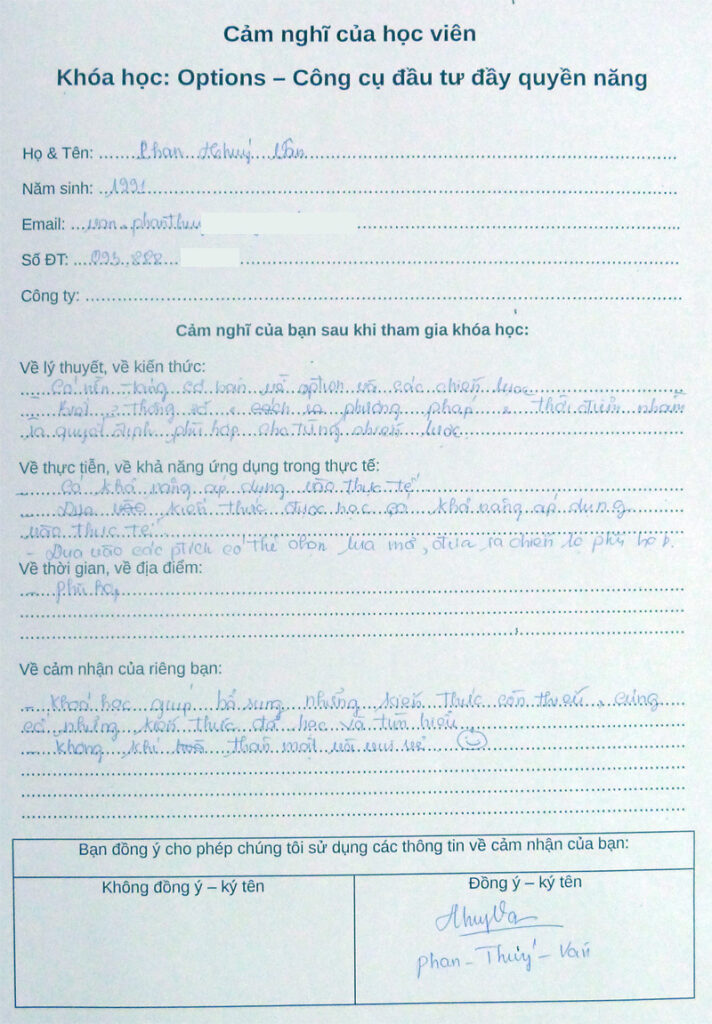 Cảm nghĩ của học viên
Khóa học: Options – Công cụ đầu tư đầy quyền năng
Họ & Tên: Phan Thuý Vân
Năm sinh: 1991
Email: van.phanthuy
Số ĐT: 093.888
Công ty:
Cảm nghĩ của bạn sau khi tham gia khóa học:
Về lý thuyết, về kiến thức:
- Có nền tảng cơ bản về option và các chiến lược
- thông số, cách và phương pháp, thời điểm nhằm
ra quyết định phù hợp cho từng chiến lược.
Về thực tiễn, về khả năng ứng dụng trong thực tế:
- Có khả năng áp dụng vào thực tế
- Dựa vào kiến thức được học có khả năng áp dụng
vào thực tế.
- Dựa vào các ptích có thể chọn lựa mở, đưa ra chiến lc phù hợp.
Về thời gian, về địa điểm:
- Phù hợp
Về cảm nhận của riêng bạn:
- Khoá học giúp bổ sung những kiến thức còn thiếu, củng
cố những kiến thức đã học và tìm hiểu.
- Không khí thân mật và vui vẻ
Bạn đồng ý cho phép chúng tôi sử dụng các thông tin về cảm nhận của bạn:
Không đồng ý – ký tên
Đồng ý – ký tên
ThuyVa
Phan - Thuý - Vân